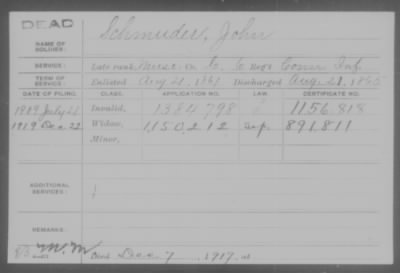 DEAD
NAME OF SOLDIER: Schmuder, John
SERVICE: Late rank, Co. Reg't Conn Inf
TERM OF SERVICE: Enlisted Aug 21, 1861 Discharged Aug. 21, 1865
DATE OF FILING. CLASS. APPLICATION NO. LAW. CERTIFICATE NO.
July Invalid, 1384798 1156818
1919 Dec. 22 Widow, 1150212 891811
Minor,
ADDITIONAL SERVICES:
REMARKS:
Died Dec. 7, 1919, at